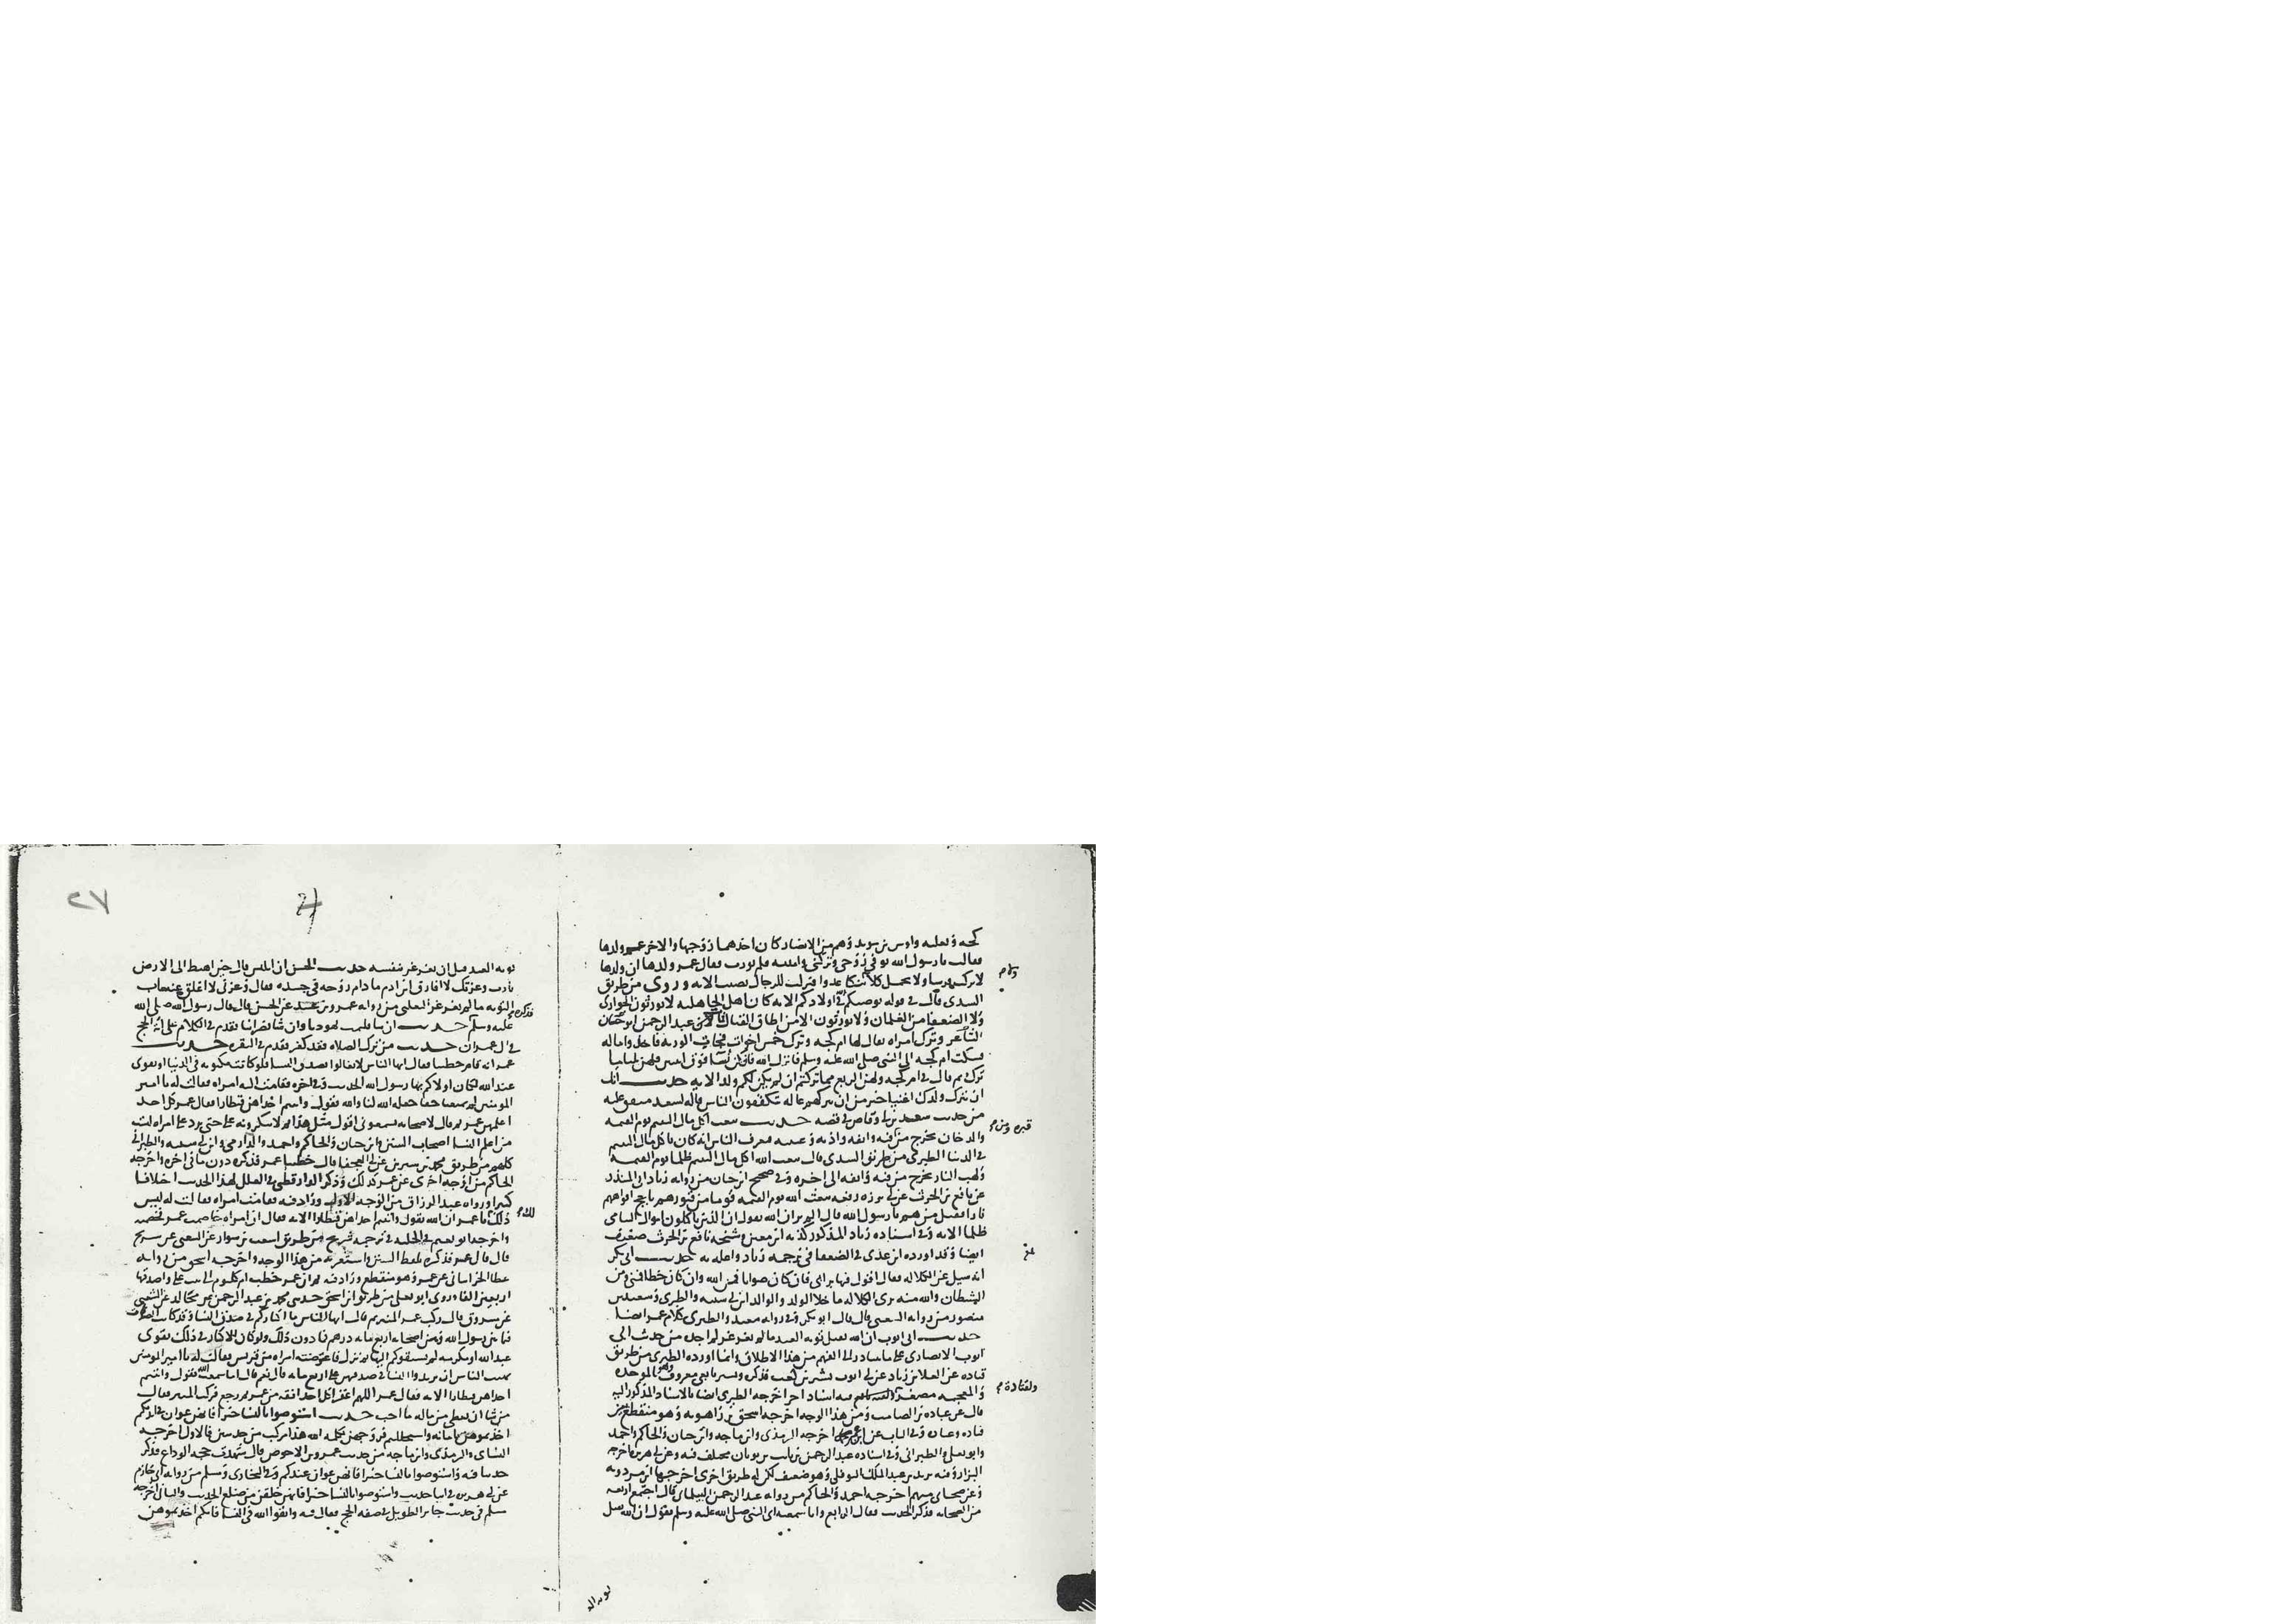 كجه وثعلبة واوس بن سويد وهم من الانصار كان احدهما زوجها والاخر عم ولدها
فقالت يا رسول الله توفي زوجي وتركني وابنته فلم نورث فقال عم ولدها ان ولدها
لا يركب فرسا ولا يحمل كلا ولا ينكا عدوا فنزلت للرجال نصيب الايه وروى من طريق
السدى قال في قوله يوصيكم الله في اولادكم الايه كان اهل الجاهليه لا يورثون الجوارى
ولا الضعفا من الغلمان ولا يورثون الا من اطاق القتال فمات عبد الرحمن اخو حسان
الشاعر وترك امراه يقال لها ام كجه وترك خمس اخوات فجات الورثه فاخذوا ماله
فشكت ام كجه الى النبي صلى الله عليه وسلم فانزل الله فان كن نسا فوق اثنتين فلهن ثلثا ما
ترك ثم قال في ام كجه ولهن الربع مما تركتم ان لم يكن لكم ولد الايه حديث انك
ان تترك ولدك اغنيا خير من ان تتركهم عاله يتكففون الناس قاله لسعد متفق عليه
من حديث سعد بن ابي وقاص في قصه حديث يبعث اكل مال اليتيم يوم القيمه
والدخان يخرج من فيه وانفه واذنيه وعينيه فيعرف الناس انه كان ياكل مال اليتيم
في الدنيا الطبري من طريق السدى قال يبعث الله اكل مال اليتيم ظلما يوم القيمة
ولهب النار يخرج من فيه وانفه الى اخره وفي صحيح ابن حبان من روايه زياد ابي المنذر
عن نافع بن الحرث عن ابي برزه رفعه يبعث الله يوم القيمه قوما من قبورهم تاجج افواههم
نارا فقيل من هم يا رسول الله قال الم تر ان الله يقول ان الذين ياكلون اموال اليتامى
ظلما الايه وفي اسناده زياد المذكور كذبه ابن معين وشيخه نافع بن الحرث ضعيف
ايضا وقد اورده ابن عدى في الضعفا في ترجمه زياد واعله به حديث ابي بكر
انه سيل عن الكلاله فقال اقول فيها برايي فان كان صوابا فمن الله وان كان خطا فمني ومن
الشيطان والله منه برى الكلاله ما خلا الولد والوالد ابن ابي شيبه والطبرى وسعيد بن
منصور من روايه الشعبي قال قال ابو بكر وفي روايه سعيد والطبرى كلام عمر ايضا
حديث ابي ايوب ان الله يقبل توبه العبد ما لم يغرغر لم اجده من حديث ابي
ايوب الانصارى على ما يتبادر الى الفهم من هذا الاطلاق وانما اورده الطبرى من طريق
قتاده عن العلا بن زياد عن ابي ايوب بشير بن كعب فذكره وبشير تابعي معروف وهو بالموحده
والمعجمه مصغر فيه اسناد اخر اخرجه الطبرى ايضا بالاسناد المذكور اليه
قال عن عباده بن الصامت ومن هذا الوجه اخرجه اسحق بن راهويه وهو منقطع بين
قتاده وعباده وفي الباب عن ابن عمر اخرجه الترمذى وابن ماجه وابن حبان والحاكم واحمد
وابو يعلى والطبراني وفي اسناده عبد الرحمن بن ثابت بن ثوبان مختلف فيه وعن ابي هريره اخرجه
البزار وفيه يزيد بن عبد الملك النوفلى وهو ضعيف لكن له طريق اخرى اخرجها ابن مردويه
وعن صحابى مبهم اخرجه احمد والحاكم من روايه عبد الرحمن البيلماني قال اجتمع اربعه
من الصحابه فذكر الحديث فقال الرابع وانا سمعته اى النبي صلى الله عليه وسلم يقول ان الله يقبل
ولقتادة
توبه العبد قبل ان يغرغر بنفسه حديث الحسن ان ابليس قال حين اهبط الى الارض
يا رب وعزتك لا افارق ابن ادم ما دام روحه في جسده فقال وعزتى لا اغلق عنه باب
التوبه ما لم يغرغر الثعلبى من روايه عمرو بن عبيد عن الحسن قال قال رسول الله صلى الله
فذكره
عليه وسلم حديث ان شا فليمت يهوديا وان شا نصرانيا تقدم في الكلام على ايه الحج
في ال عمران حديث من ترك الصلاه فقد كفر تقدم في البقره حديث
عمر انه قام خطيبا فقال ايها الناس لا تغالوا بصدق النسا فلو كانت مكرمه في الدنيا او تقوى
عند الله لكان اولاكم بها رسول الله الحديث وفي اخره فقامت اليه امراه فقالت له يا امير
المومنين لم تمنعنا حقا جعله الله لنا والله يقول واتيتم احداهن قنطارا فقال عمر كل احد
اعلم من عمر ثم قال لاصحابه تسمعوني اقول مثل هذا ثم لا تنكرونه على حتى ترد على امراه ليست
من اعلم النسا اصحاب السنن وابن حبان والحاكم واحمد والدارمى وابن ابي شيبه والطبراني
كلهم من طريق محمد بن سيرين عن ابي العجفا قال خطبنا عمر فذكره دون ما في اخره واخرجه
الحاكم من اوجه اخرى عن عمر كذلك وذكر الدارقطنى في العلل لهذا الحديث اختلافا
كثيرا ورواه عبد الرزاق من الوجه الاول وزاد فيه فقامت امراه فقالت له ليس
ذلك يا عمر ان الله يقول واتيتم احداهن قنطارا الايه فقال ان امراه خاصمت عمر فخصمته
لك
واخرجه ابو نعيم في الحليه في ترجمه شريح من طريق اشعث بن سوار عن الشعبى عن شريح
قال قال عمر فذكره بلفظ السنن واستغربه من هذا الوجه واخرجه اسحق من روايه
عطا الخراسانى عن عمر وهو منقطع وزاد فيه ثم ان عمر خطب ام كلثوم الى على واصدقها
اربعين الفا وروى ابو يعلى من طريق ابن اسحق حدثنى محمد بن عبد الرحمن عن مجالد عن الشعبى
عن مسروق قال ركب عمر المنبر ثم قال ايها الناس ما اكثاركم في صدق النسا وقد كانت الصدقات
فيما بين رسول الله وبين اصحابه اربع مايه درهم فما دون ذلك ولو كان الاكثار في ذلك تقوى
عند الله او مكرمه لم تسبقوكم اليها ثم نزل فاعترضته امراه من قريش فقالت له يا امير المومنين
نهيت الناس ان يزيدوا النسا في صدقهن على اربع مايه قال نعم قالت اما سمعت الله يقول واتيتم
احداهن قنطارا الايه فقال عمر اللهم اغفر اكل احد افقه من عمر ثم رجع فركب المنبر فقال
من شا ان يعطى من ماله ما احب حديث استوصوا بالنسا خيرا فانهن عوان في ايديكم
اخذتموهن بامانه الله واستحللتم فروجهن بكلمه الله هذا مركب من حديثين فالاول اخرجه
النساى والترمذى وابن ماجه من حديث عمرو بن الاحوص قال شهدت حجه الوداع فذكر
حديثا فيه واستوصوا بالنسا خيرا فانهن عوان عندكم وفي البخارى ومسلم من روايه ابي حازم
عن ابي هريره في اثنا حديث واستوصوا بالنسا خيرا فانهن خلقن من ضلع الحديث والثاني اخرجه
مسلم في حديث جابر الطويل في صفه الحج فقال فيه واتقوا الله في النسا فانكم اخذتموهن
٢٧